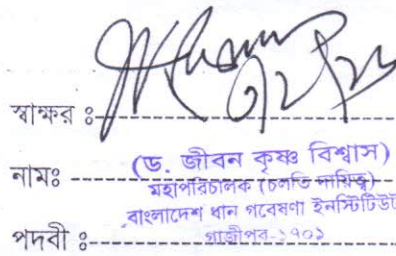 স্বাক্ষর ঃ
নামঃ (ড. জীবন কৃষ্ণ বিশ্বাস)
মহাপরিচালক (চলতি দায়িত্ব)
বাংলাদেশ ধান গবেষণা ইনস্টিটিউট
পদবী ঃ গাজীপুর-১৭০১